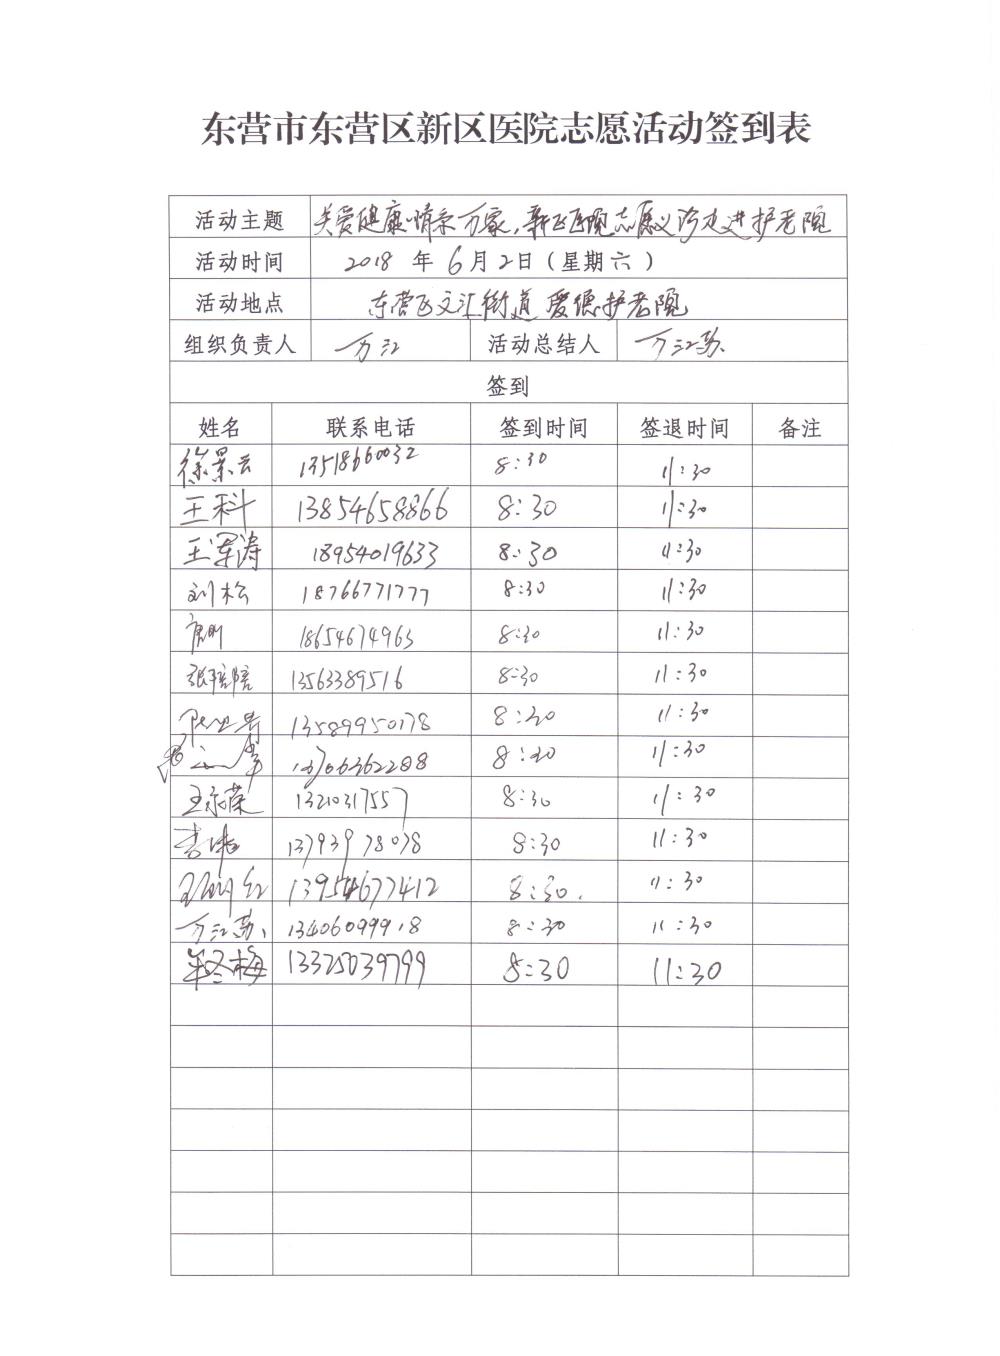 东营市东营区新区医院志愿活动签到表
活动主题 关爱健康情系万家,新区医院志愿义诊走进护老院
活动时间 2018 年 6月2日(星期六)
活动地点 东营区文汇街道 爱德护老院
组织负责人 万江 活动总结人 万江苏
签到
姓名 联系电话 签到时间 签退时间 备注
徐景云 13518660032 8:30 11:30
王科 13854658866 8:30 11:30
王军涛 18954019633 8:30 11:30
刘松 18766771777 8:30 11:30
18654674963 8:30 11:30
张培培 13563389516 8:30 11:30
13589950178 8:30 11:30
13706362288 8:30 11:30
王永荣 13210317557 8:30 11:30
李伟 13793978078 8:30 11:30
13954677412 8:30. 11:30
万江苏 13406099918 8:30 11:30
牟冬梅 13325039799 8:30 11:30